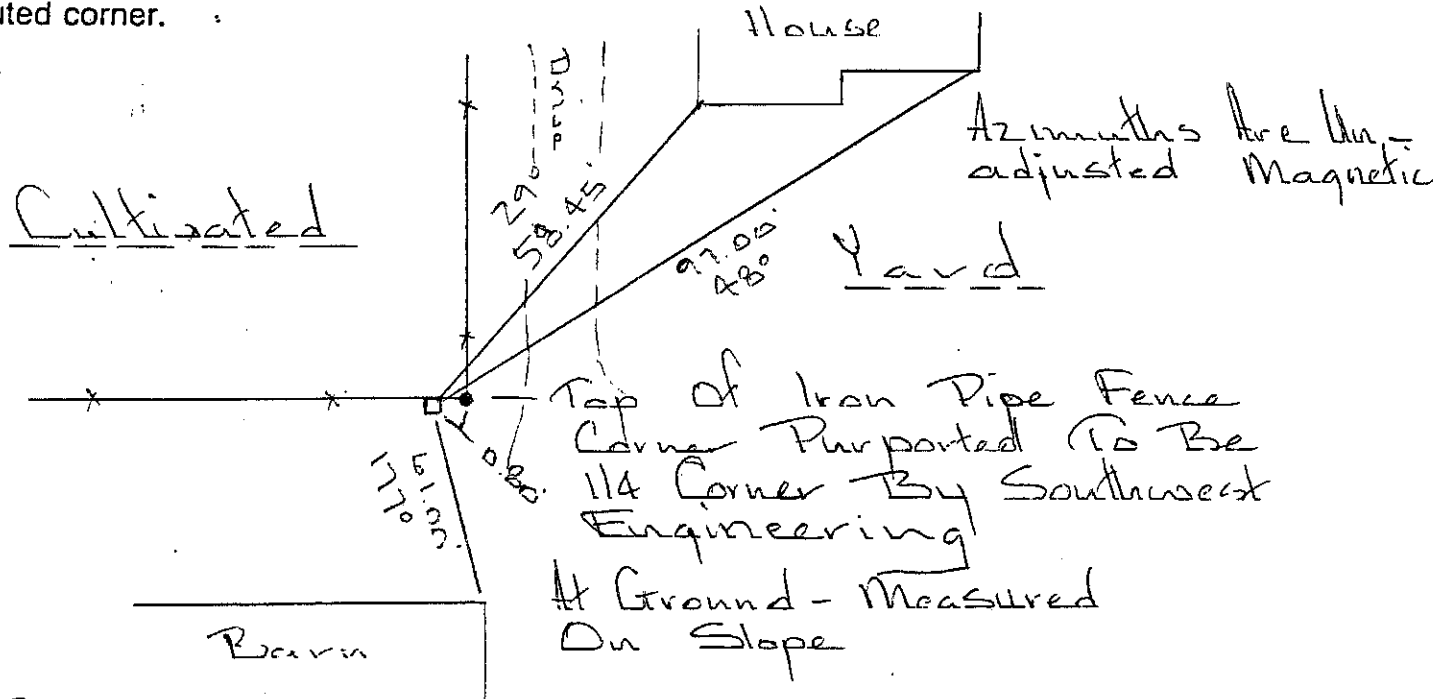 uted corner.
House
Drive
Azimuths Are Un-
adjusted Magnetic
Cultivated
29°
58.45'
97.00'
48°
Yard
Top Of Iron Pipe Fence
Corner Purported To Be
1/4 Corner By Southwest
Engineering
0.80'
177°
At Ground - Measured
On Slope
Barn